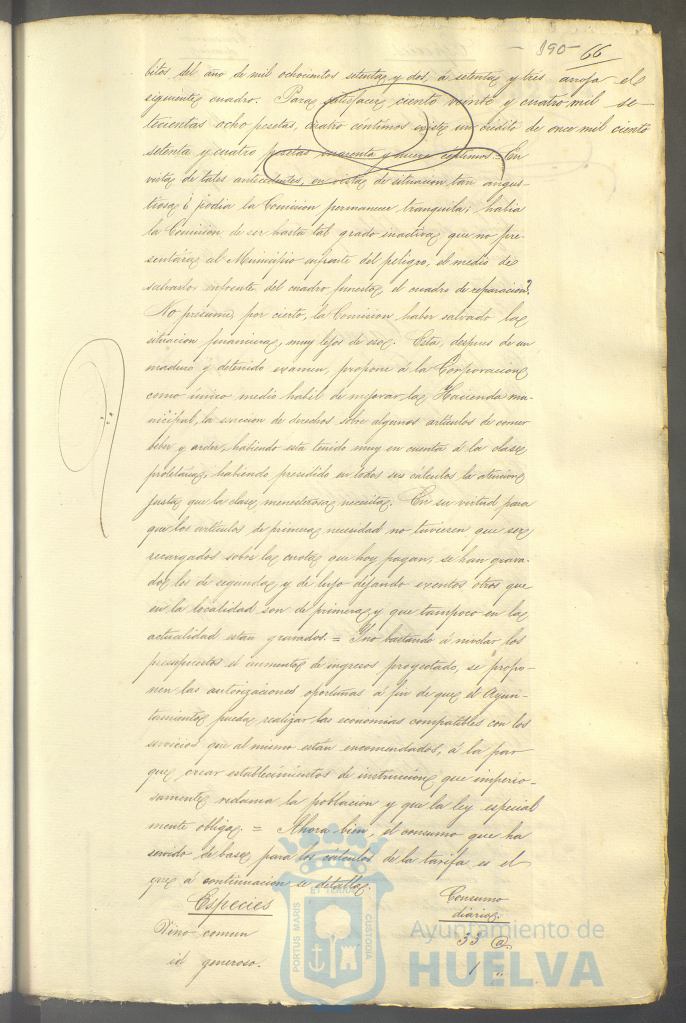 - 190 - 66
bitos del año de mil ochocientos setenta y dos, á setenta y tres arroja el
siguiente cuadro. Para satisfacer ciento veinte y cuatro mil se-
tecientas ocho pesetas, cuatro centimos existe un crédito de once mil ciento
setenta y cuatro pesetas cuarenta y nueve centimos. = En
vista de tales antecedentes, en vista de situacion tan angus-
tiosa ¿ podia la Comision permanecer tranquila; habia
la Comision de ser hasta tal grado inactiva que no pre-
sentára al Municipio enfrente del peligro, el medio de
salvarlo enfrente del cuadro funesto el cuadro de reparacion?
No presume, por cierto, la Comision haber salvado la
situacion financiera, muy lejos de eso. Esta, despues de un
maduro y detenido examen, propone á la Corporacion
como único medio habil de mejorar la Hacienda mu-
nicipal, la esaccion de derechos sobre algunos articulos de comer
beber y arder, habiendo esta tenido muy en cuenta á la clase
proletaria, habiendo presidido en todos sus cálculos la atencion
justa que la clase menesterosa necesita. En su virtud para
que los articulos de primera necesidad no tuvieren que ser
recargados sobre la cuota que hoy pagan, se han grava-
do los de segunda y de lujo dejando exentos otros que
en la localidad son de primera y que tampoco en la
actualidad estan gravados. = Y no bastando á nivelar los
presupuestos el aumento de ingresos proyectado, se propo-
nen las autorizaciones oportunas á fin de que el Ayun-
tamiento pueda realizar las economias compatibles con los
servicios que al mismo estan encomendados, á la par
que crear establecimientos de instruccion que imperio-
samente reclama la poblacion y que la ley especial
mente obliga. = Ahora bien, el consumo que ha
servido de base para los cálculos de la tarifa es el
que á continuacion se detalla.
Especies Consumo
diario.
Vino comun 33 @
id generoso. 1 "
PORTUS MARIS ET TERRAE CUSTODIA
Ayuntamiento de
HUELVA